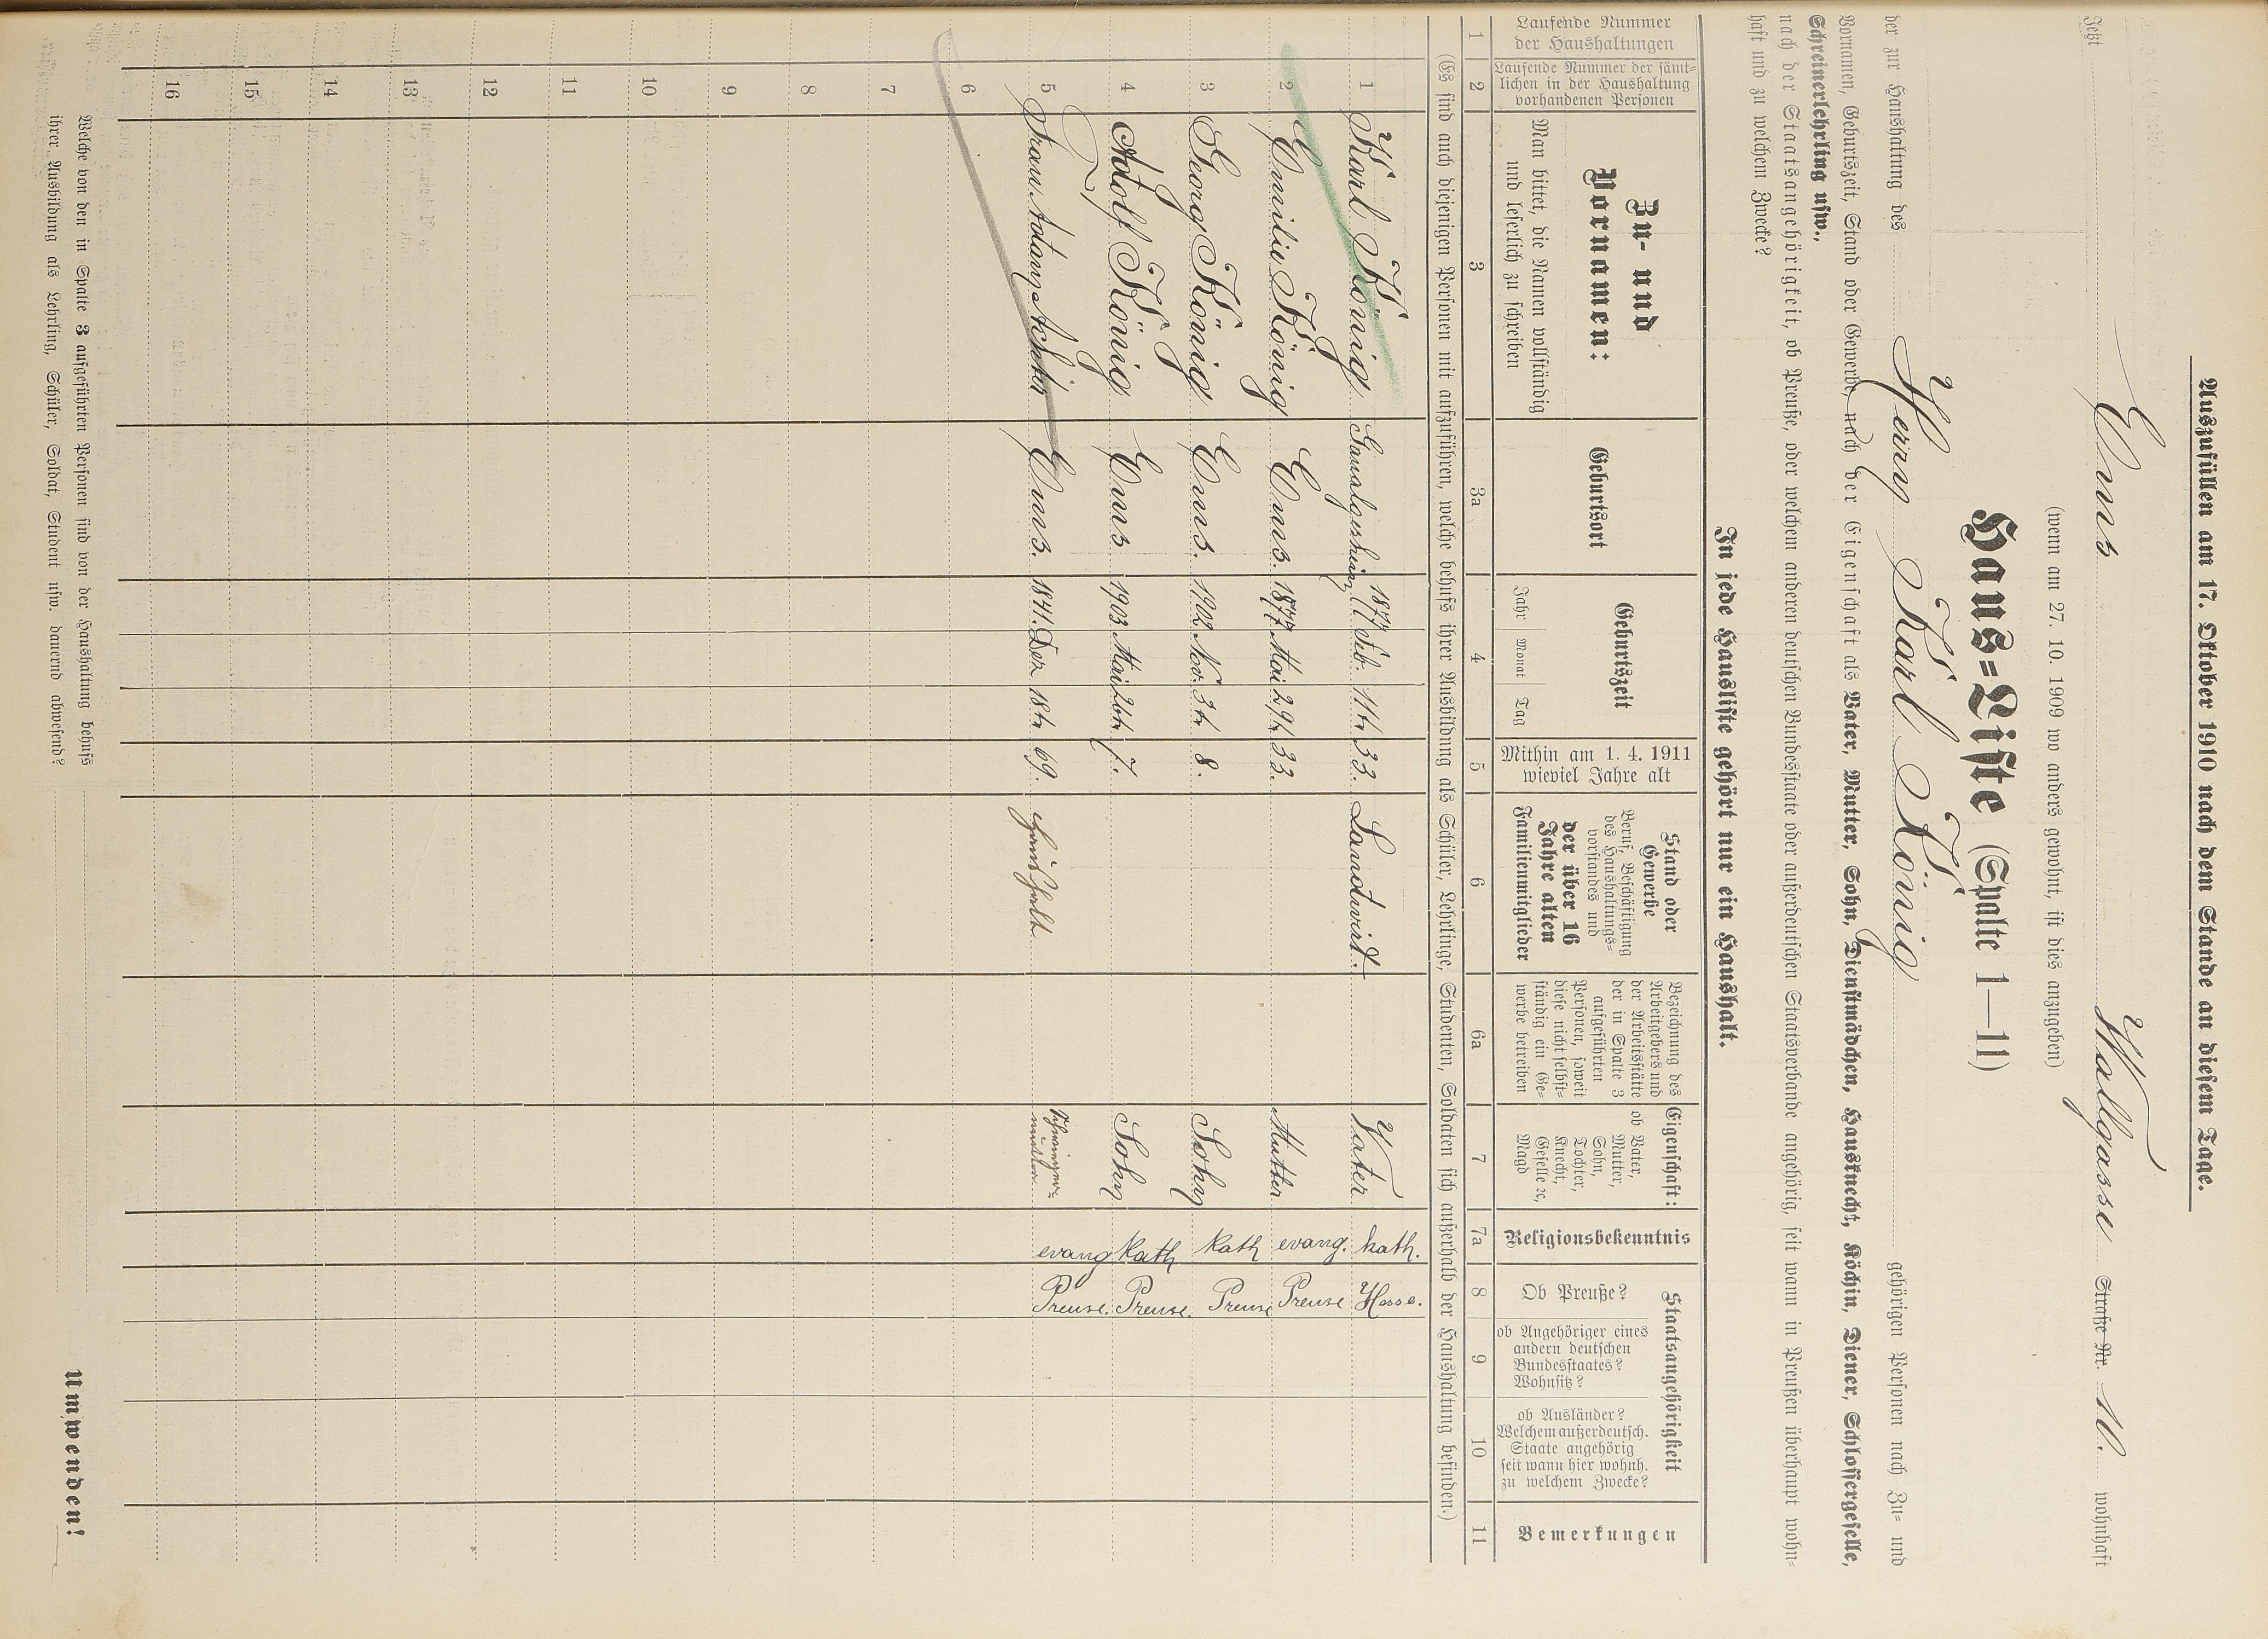 Auszufüllen am 17. Oktober 1910 nach dem Stande an diesem Tage.
Jetzt Ems Wallgasse Straße Nr. 10. wohnhaft
(wenn am 27. 10. 1909 wo anders gewohnt, ist dies anzugeben)
Haus=Liste (Spalte 1—11)
der zur Haushaltung des Herrn Karl König gehörigen Personen nach Zu= und
Vornamen, Geburtszeit, Stand oder Gewerbe, nach der Eigenschaft als Vater, Mutter, Sohn, Dienstmädchen, Hausknecht, Köchin, Diener, Schlossergeselle,
Schreinerlehrling usw.,
nach der Staatsangehörigkeit, ob Preuße, oder welchem anderen deutschen Bundesstaate oder außerdeutschen Staatsverbande angehörig, seit wann in Preußen überhaupt wohn=
haft und zu welchem Zwecke?
In jede Hausliste gehört nur ein Haushalt.
Laufende Nummer der Haushaltungen
Laufende Nummer der sämt=lichen in der Haushaltung vorhandenen Personen
Zu- und Vornamen:
Man bittet, die Namen vollständig und leserlich zu schreiben
Geburtsort
Geburtszeit
Jahr Monat Tag
Mithin am 1. 4. 1911 wieviel Jahre alt
Stand oder Gewerbe
Beruf, Beschäftigung des Haushaltungs=vorstandes und der über 16 Jahre alten Familienmitglieder
Bezeichnung des Arbeitgebers und der Arbeitsstätte der in Spalte 3 aufgeführten Personen, soweit diese nicht selbst=ständig ein Ge=werbe betreiben
Eigenschaft:
ob Vater, Mutter, Sohn, Tochter, Knecht, Geselle ec, Magd
Religionsbekenntnis
Staatsangehörigkeit
Ob Preuße?
ob Angehöriger eines andern deutschen Bundesstaates? Wohnsitz?
ob Ausländer? Welchem außerdeutsch. Staate angehörig seit wann hier wohnh. zu welchem Zwecke?
Bemerkungen
1 2 3 3a 4 5 6 6a 7 7a 8 9 10 11
(Es sind auch diejenigen Personen mit aufzuführen, welche behufs ihrer Ausbildung als Schüler, Lehrlinge, Studenten, Soldaten sich außerhalb der Haushaltung befinden.)
1 Karl König 1877 Feb. 11tr 33. Landwirt. Vater kath. Hesse.
2 Emilie König Ems. 1877 Mai 29tr 33. Mutter evang. Preuse
3 Georg König Ems. 1902 Nov. 3tr 8. Sohn kath Preuse
4 Adolf König Ems 1903 Mai 26tr 7. Sohn kath Preuse.
5 Frau Ems. 1841. Dez 18tr 69. Haushalt Schwiegermutter evang Preuse.
6
7
8
9
10
11
12
13
14
15
16
Welche von den in Spalte 3 aufgeführten Personen sind von der Haushaltung behufs
ihrer Ausbildung als Lehrling, Schüler, Soldat, Student usw. dauernd abwesend?
Umwenden!